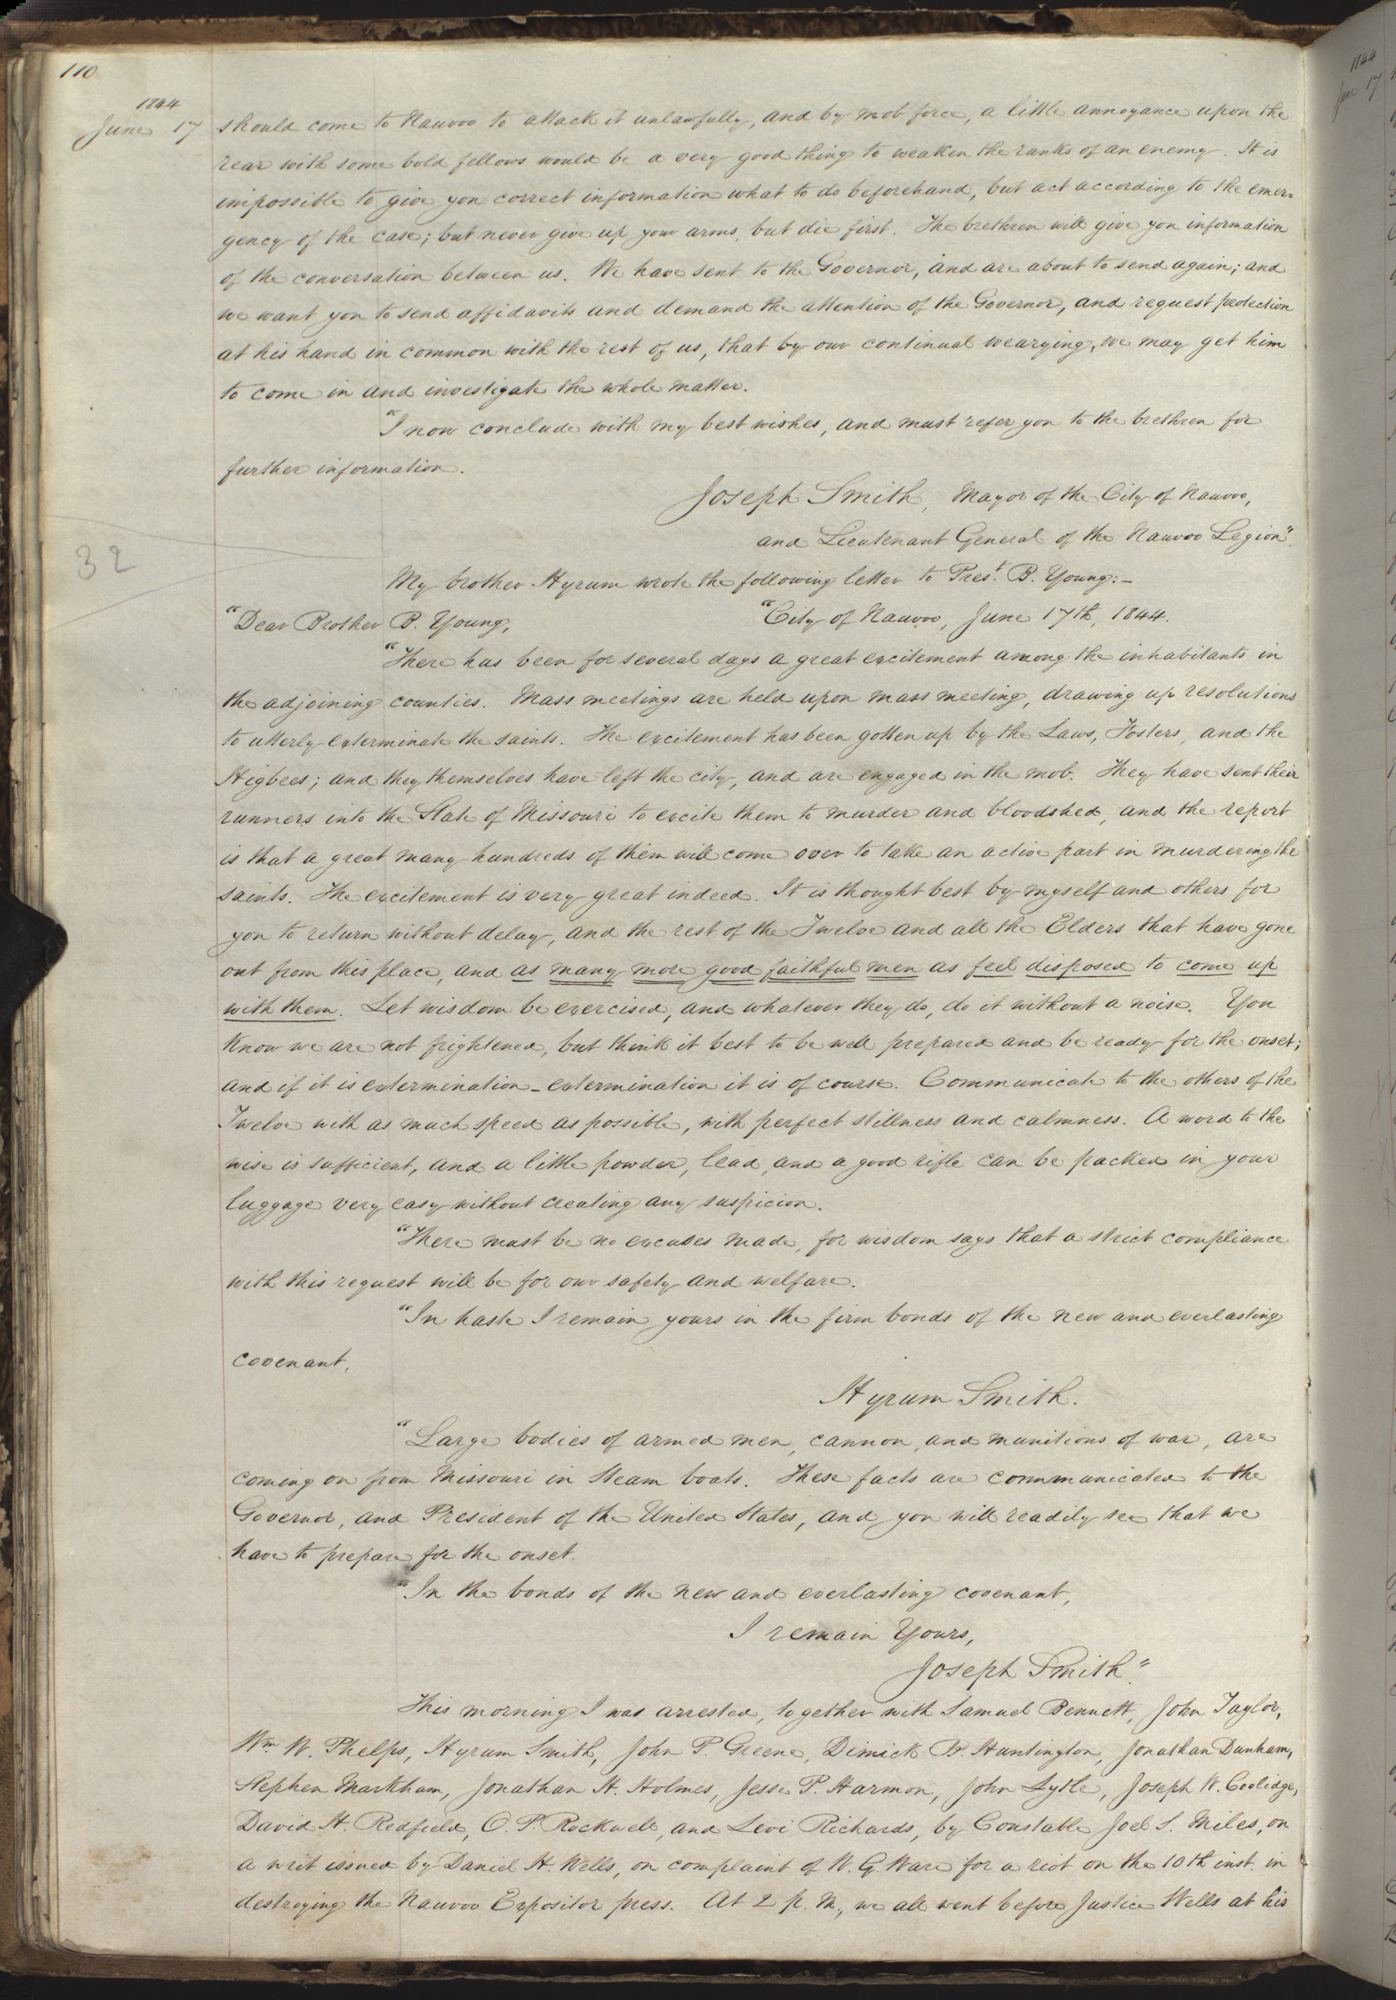 110
1844
June 17 should come to Nauvoo to attack it unlawfully, and by mob force, a little annoyance upon the
rear with some bold fellows would be a very good thing to weaken the ranks of an enemy. It is
impossible to give you correct information what to do beforehand, but act according to the emer=
gency of the case; but never give up your arms, but die first. The brethren will give you information
of the conversation between us. We have sent to the Governor, and are about to send again; and
we want you to send affidavits and demand the attention of the Governor, and request protection
at his hand in common with the rest of us, that by our continual wearying, we may get him
to come in and investigate the whole matter.
"I now conclude with my best wishes, and must refer you to the brethren for
further information.
Joseph Smith, Mayor of the City of Nauvoo,
and Lieutenant General of the Nauvoo Legion".
32
My brother Hyrum wrote the following letter to Prest. B. Young:-
"Dear Brother B. Young, "City of Nauvoo, June 17th, 1844.
"There has been for several days a great excitement among the inhabitants in
the adjoining counties. Mass meetings are held upon mass meeting, drawing up resolutions
to utterly exterminate the saints. The excitement has been gotten up by the Laws, Fosters, and the
Higbees; and they themselves have left the city, and are engaged in the mob. They have sent their
runners into the State of Missouri to excite them to murder and bloodshed, and the report
is that a great many hundreds of them will come over to take an active part in murdering the
saints. The excitement is very great indeed. It is thought best by myself and others for
you to return without delay, and the rest of the Twelve and all the Elders that have gone
out from this place, and as many more good faithful men as feel disposed to come up
with them. Let wisdom be exercised, and whatever they do, do it without a noise. You
know we are not frightened, but think it best to be well prepared and be ready for the onset;
and if it is extermination - extermination it is of course. Communicate to the others of the
Twelve with as much speed as possible, with perfect stillness and calmness. A word to the
wise is sufficient, and a little powder, lead, and a good rifle can be packed in your
luggage very easy without creating any suspicion.
"There must be no excuses made, for wisdom says that a strict compliance
with this request will be for our safety and welfare.
"In haste I remain yours in the firm bonds of the new and everlasting
covenant,
Hyrum Smith.
"Large bodies of armed men, cannon, and munitions of war, are
coming on from Missouri in Steam boats. These facts are communicated to the
Governor, and President of the United States, and you will readily see that we
have to prepare for the onset.
"In the bonds of the new and everlasting covenant,
I remain Yours,
Joseph Smith."
This morning I was arrested, together with Samuel Bennett, John Taylor,
Wm W. Phelps, Hyrum Smith, John P. Greene, Dimick B. Huntington, Jonathan Dunham,
Stephen Markham, Jonathan H. Holmes, Jesse P. Harmon, John Lytle, Joseph W. Coolidge,
David H. Redfield, O. P. Rockwell, and Levi Richards, by Constable Joel S. Miles, on
a writ issued by Daniel H. Wells, on complaint of W. G. Ware for a riot on the 10th inst. in
destroying the Nauvoo Expositor press. At 2 p. m., we all went before Justice Wells at his
1844
June 17